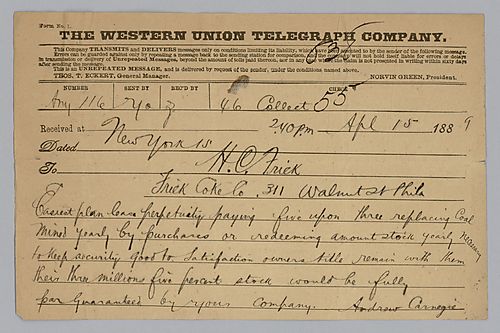 Form No. 1.
THE WESTERN UNION TELEGRAPH COMPANY.
This Company TRANSMITS and DELIVERS messages only on conditions limiting its liability, which have been assented to by the sender of the following message.
Errors can be guarded against only by repeating a message back to the sending station for comparison, and the company will not hold itself liable for errors or delays
in transmission or delivery of Unrepeated Messages, beyond the amount of tolls paid thereon, nor in any case where the claim is not presented in writing within sixty days
after sending the message.
This is an UNREPEATED MESSAGE, and is delivered by request of the sender, under the conditions named above.
THOS. T. ECKERT, General Manager. NORVIN GREEN, President.
NUMBER SENT BY REC'D BY CHECK
116 46 Collect 55
Received at 240 pm Apl 15 1889
Dated New York 15
To H.C. Frick
Frick Coke Co 311 Walnut St Phila
Easiest plan lease perpetuity paying five upon three replacing Coal
Mined yearly by purchases or redeeming amount stock yearly
to keep security good to satisfaction owners title remain with them
their three millions five percent stock would be fully
par Guaranteed by yours Company. Andrew Carnegie